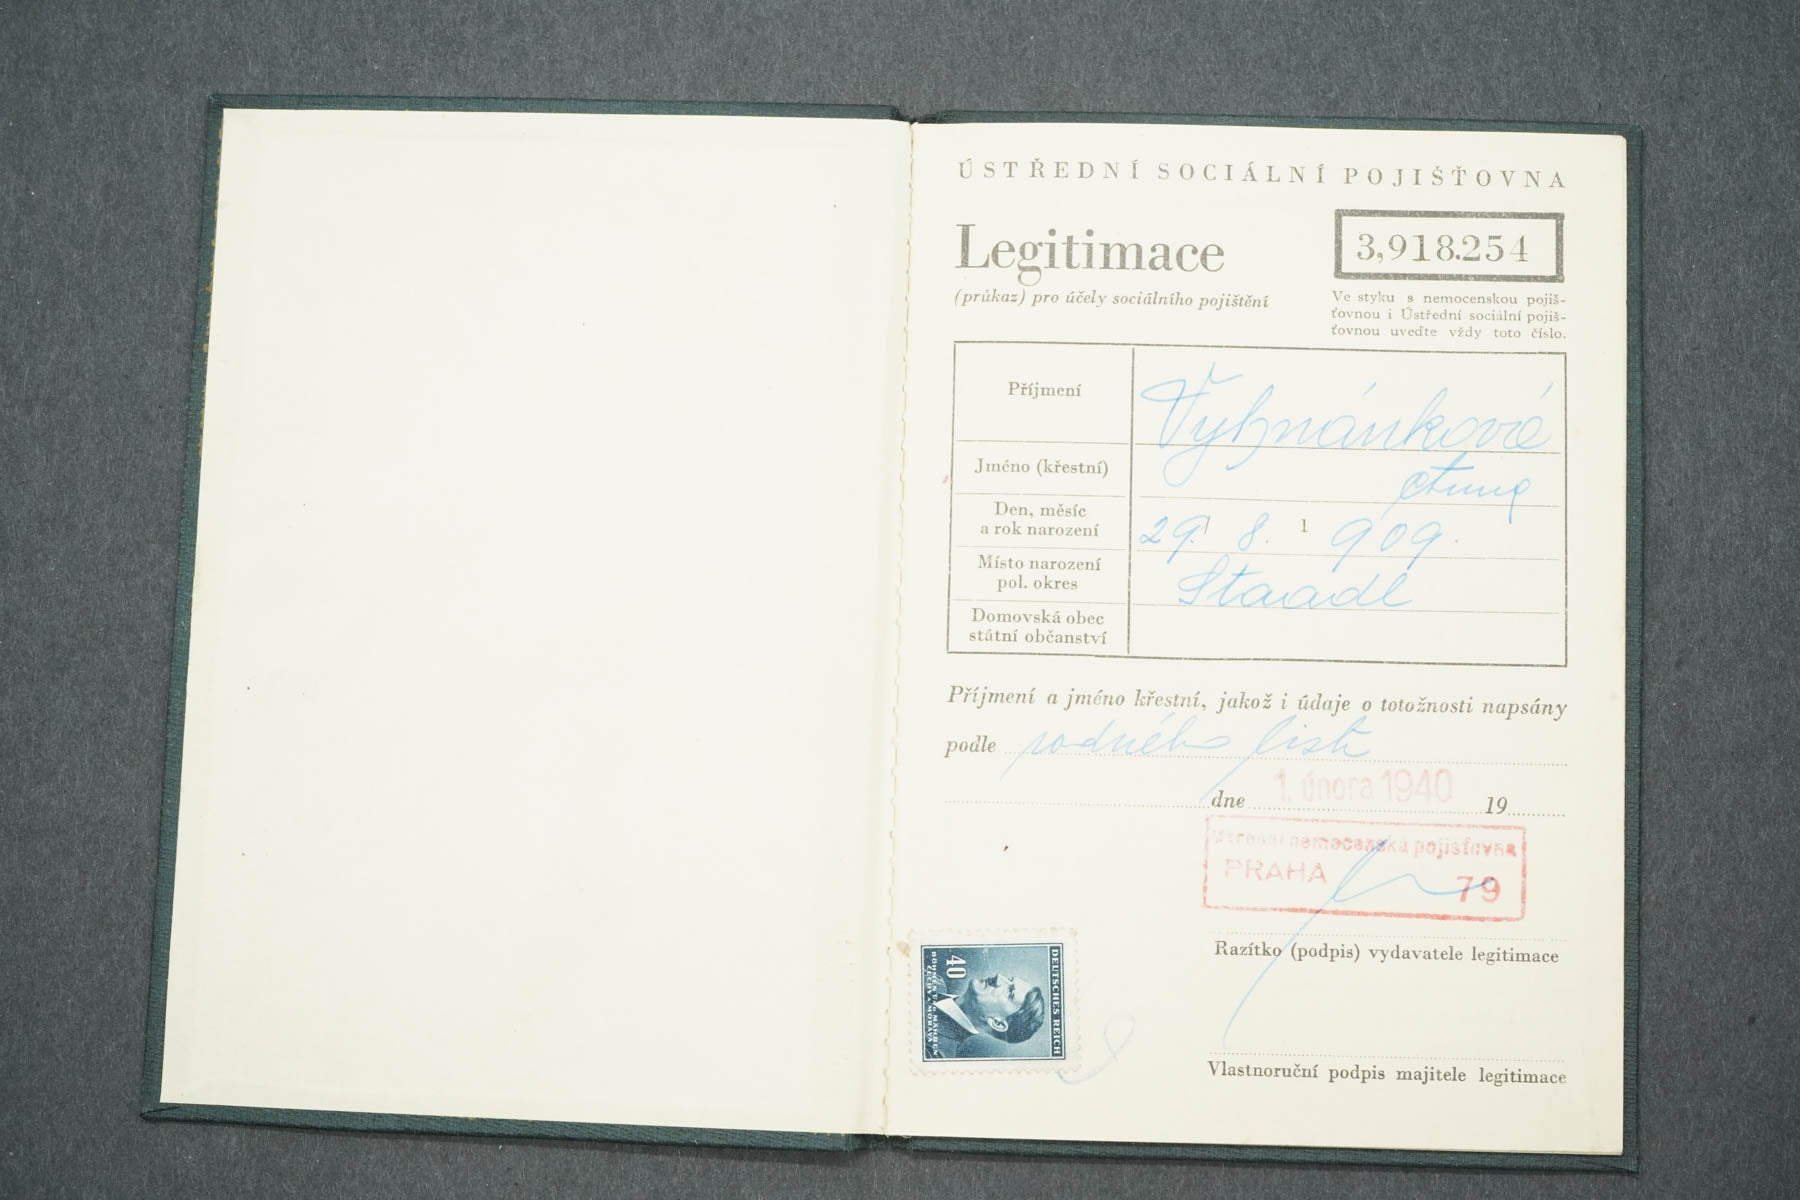 ÚSTŘEDNÍ SOCIÁLNÍ POJIŠŤOVNA
Legitimace
3,918.254
(průkaz) pro účely sociálního pojištění
Ve styku s nemocenskou pojiš-
ťovnou i Ústřední sociální pojiš-
ťovnou uveďte vždy toto číslo.
Příjmení
Vyhnánková
Jméno (křestní)
Anna
Den, měsíc
a rok narození
29. 8. 1 909.
Místo narození
pol. okres
Staadl
Domovská obec
státní občanství
Příjmení a jméno křestní, jakož i údaje o totožnosti napsány
podle rodného listu
dne 1. února 1940 19
nemocenská pojišťovna
PRAHA 79
Razítko (podpis) vydavatele legitimace
Vlastnoruční podpis majitele legitimace
DEUTSCHES REICH
40
BÖHMEN U. MÄHREN
ČECHY A MORAVA